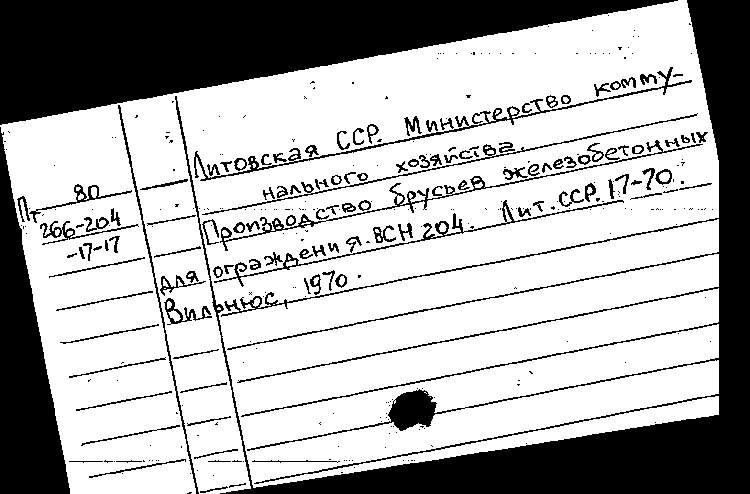 Литовская ССР. Министерство комму-
нального хозяйства.
Пт 80
266-204
-17-17
Производство брусьев железобетонных
для ограждения. ВСН 204. Лит. ССР. 17-70.
Вильнюс, 1970.